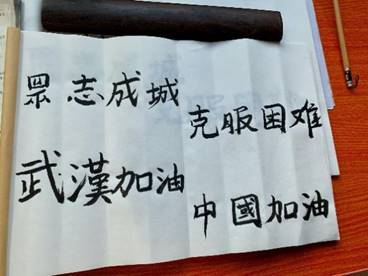 眾志成城
克服困难
武漢加油
中國加油